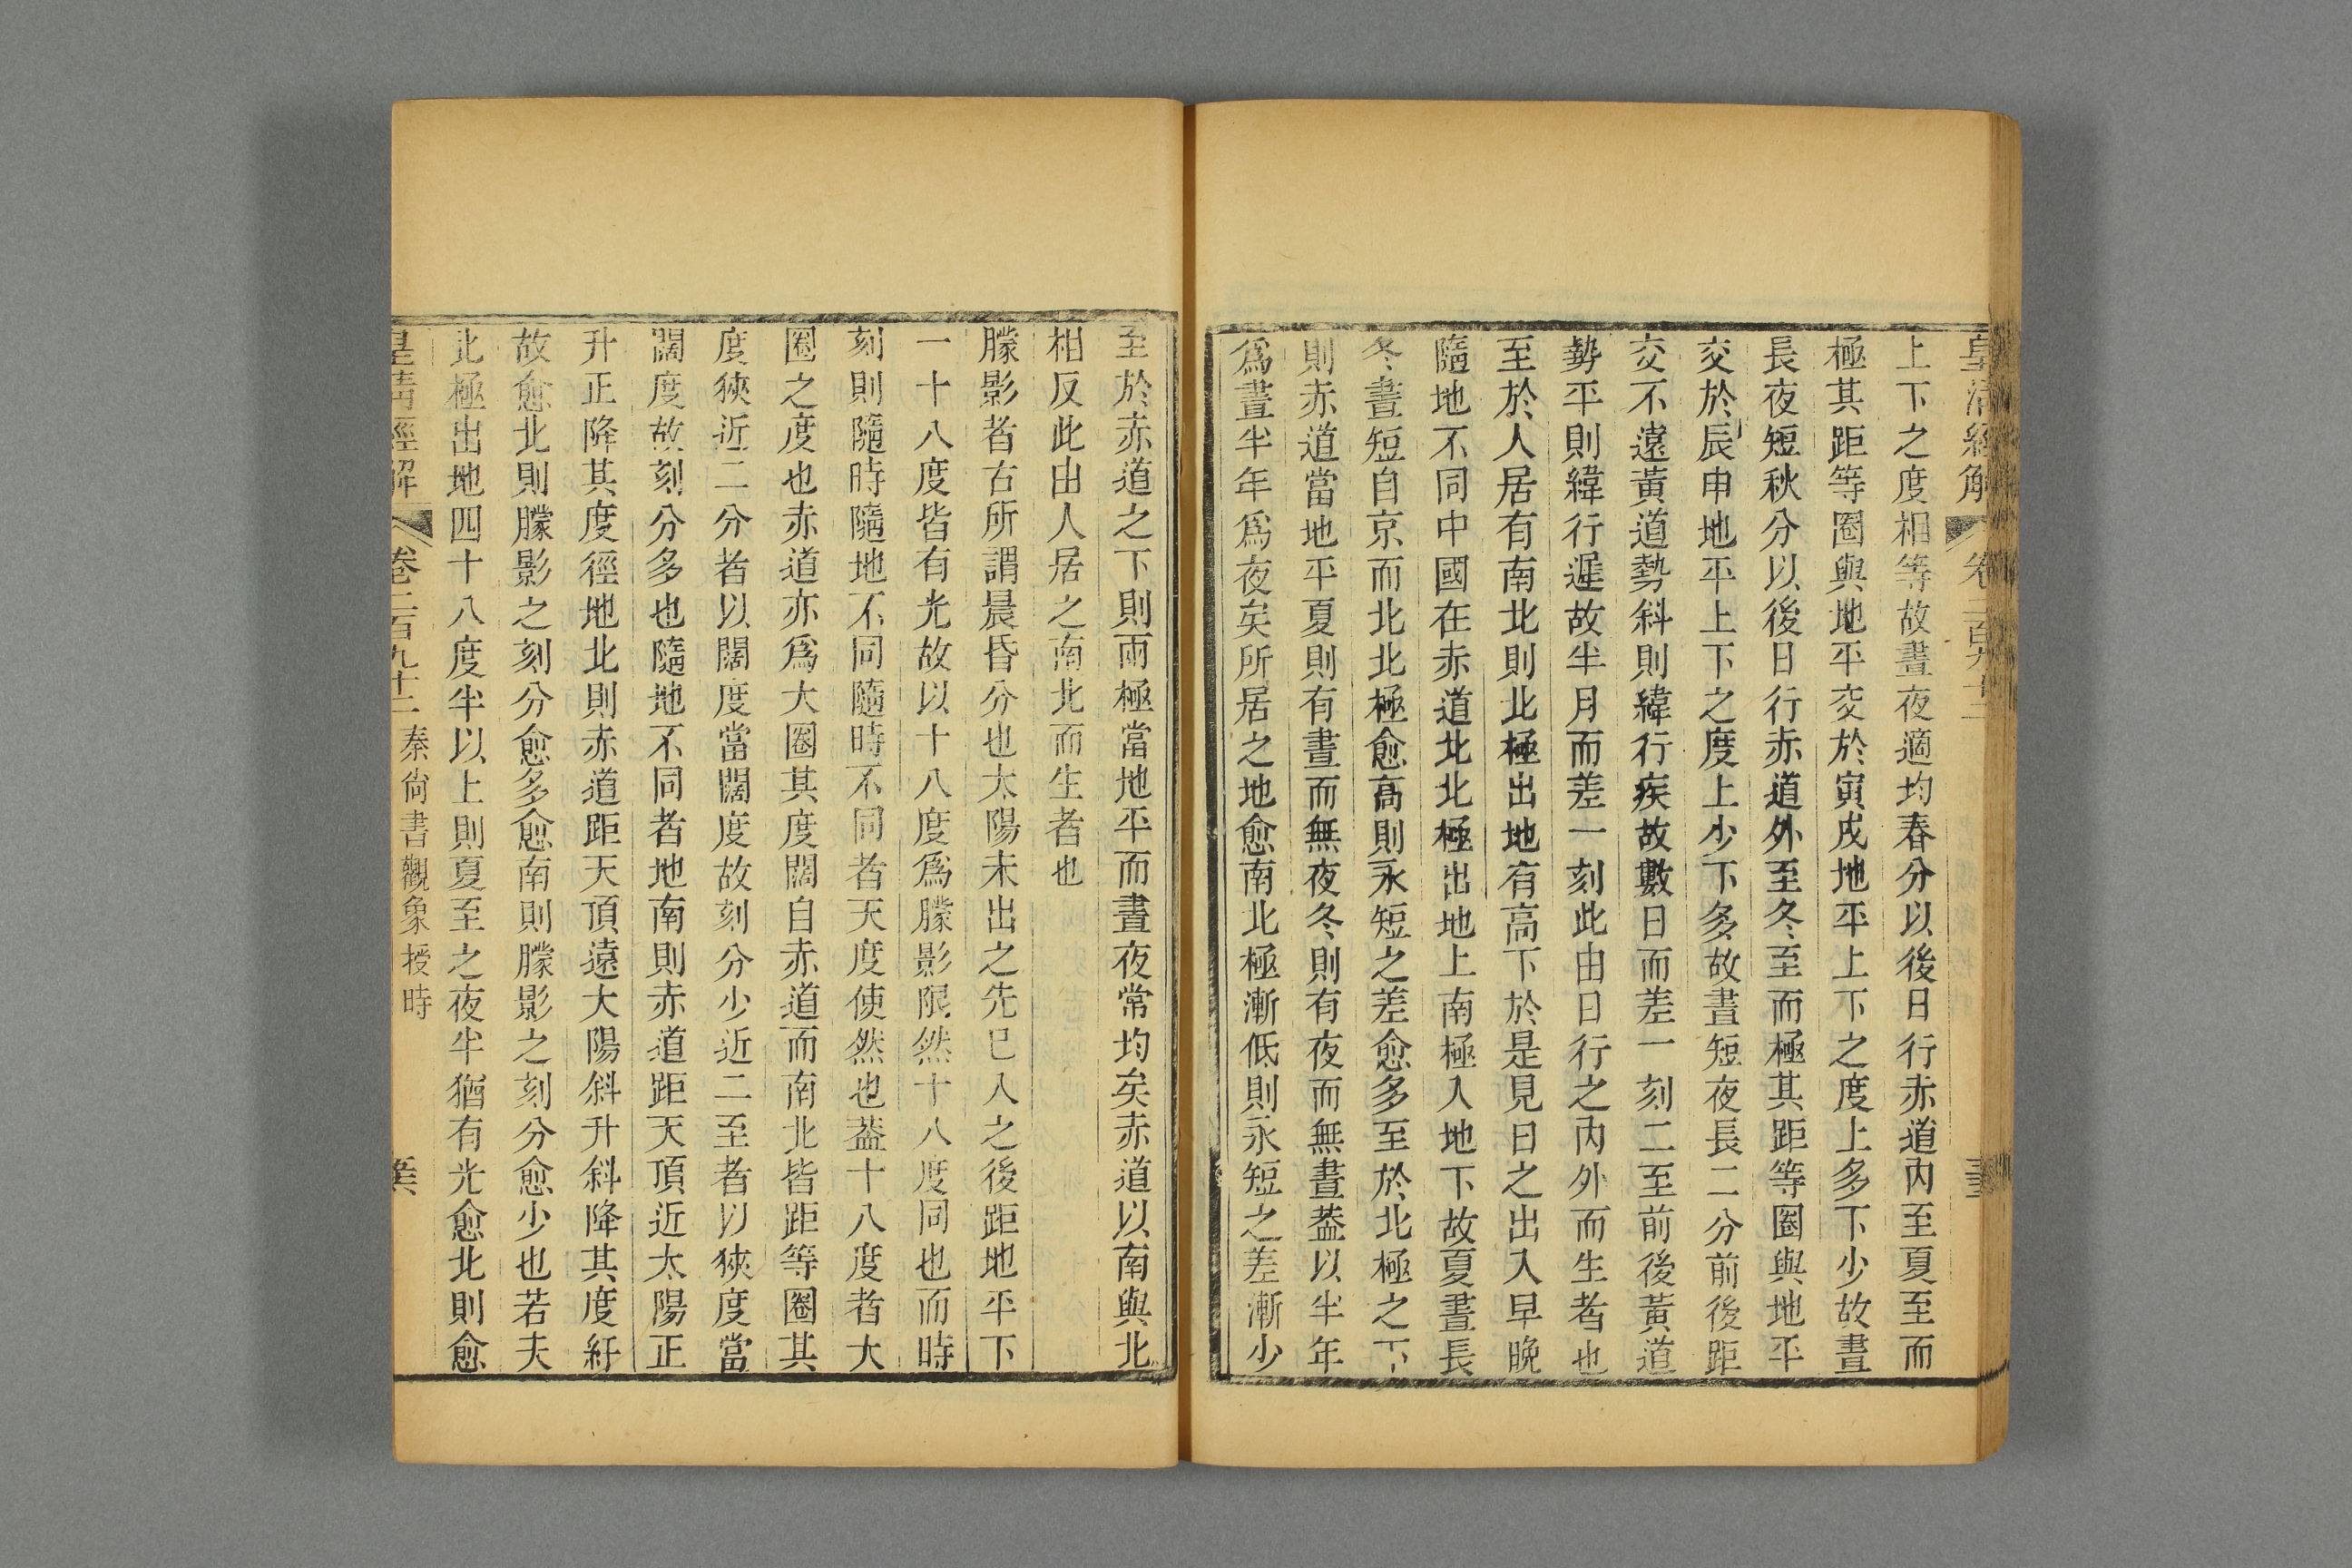 皇清經解
卷二百九十二
上下之度相等故晝夜適均春分以後日行赤道内至夏至而
極其距等圈與地平交於寅戌地平上下之度上多下少故晝
長夜短秋分以後日行赤道外至冬至而極其距等圈與地平
交於辰申地平上下之度上少下多故晝短夜長二分前後距
交不遠黃道勢斜則緯行疾故數日而差一刻二至前後黃道
勢平則緯行遲故半月而差一刻此由日行之内外而生者也
至於人居有南北則北極出地有高下於是見日之出入早晚
隨地不同中國在赤道北北極出地上南極入地下故夏晝長
冬晝短自京而北北極愈高則永短之差愈多至於北極之下
則赤道當地平夏則有晝而無夜冬則有夜而無晝葢以半年
爲晝半年爲夜矣所居之地愈南北極漸低則永短之差漸少
至於赤道之下則兩極當地平而晝夜常均矣赤道以南與北
相反此由人居之南北而生者也
朦影者古所謂晨昏分也太陽未出之先已入之後距地平下
一十八度皆有光故以十八度爲朦影限然十八度同也而時
刻則隨時隨地不同隨時不同者天度使然也葢十八度者大
圈之度也赤道亦爲大圈其度闊自赤道而南北皆距等圈其
度狹近二分者以闊度當闊度故刻分少近二至者以狹度當
闊度故刻分多也隨地不同者地南則赤道距天頂近太陽正
升正降其度徑地北則赤道距天頂遠大陽斜升斜降其度紆
故愈北則朦影之刻分愈多愈南則朦影之刻分愈少也若夫
北極出地四十八度半以上則夏至之夜半猶有光愈北則愈
皇清經解
卷二百九十二 秦尙書觀象授時